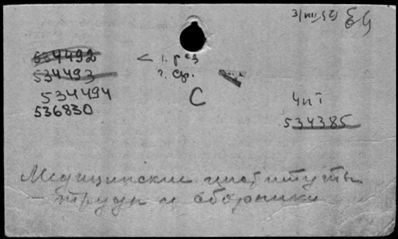 3/VIII,52
534492
534493
534494
536830
< 1. рез
2. Ср.
С
4 п т
534385
Медицинские институты
- труды и сборники